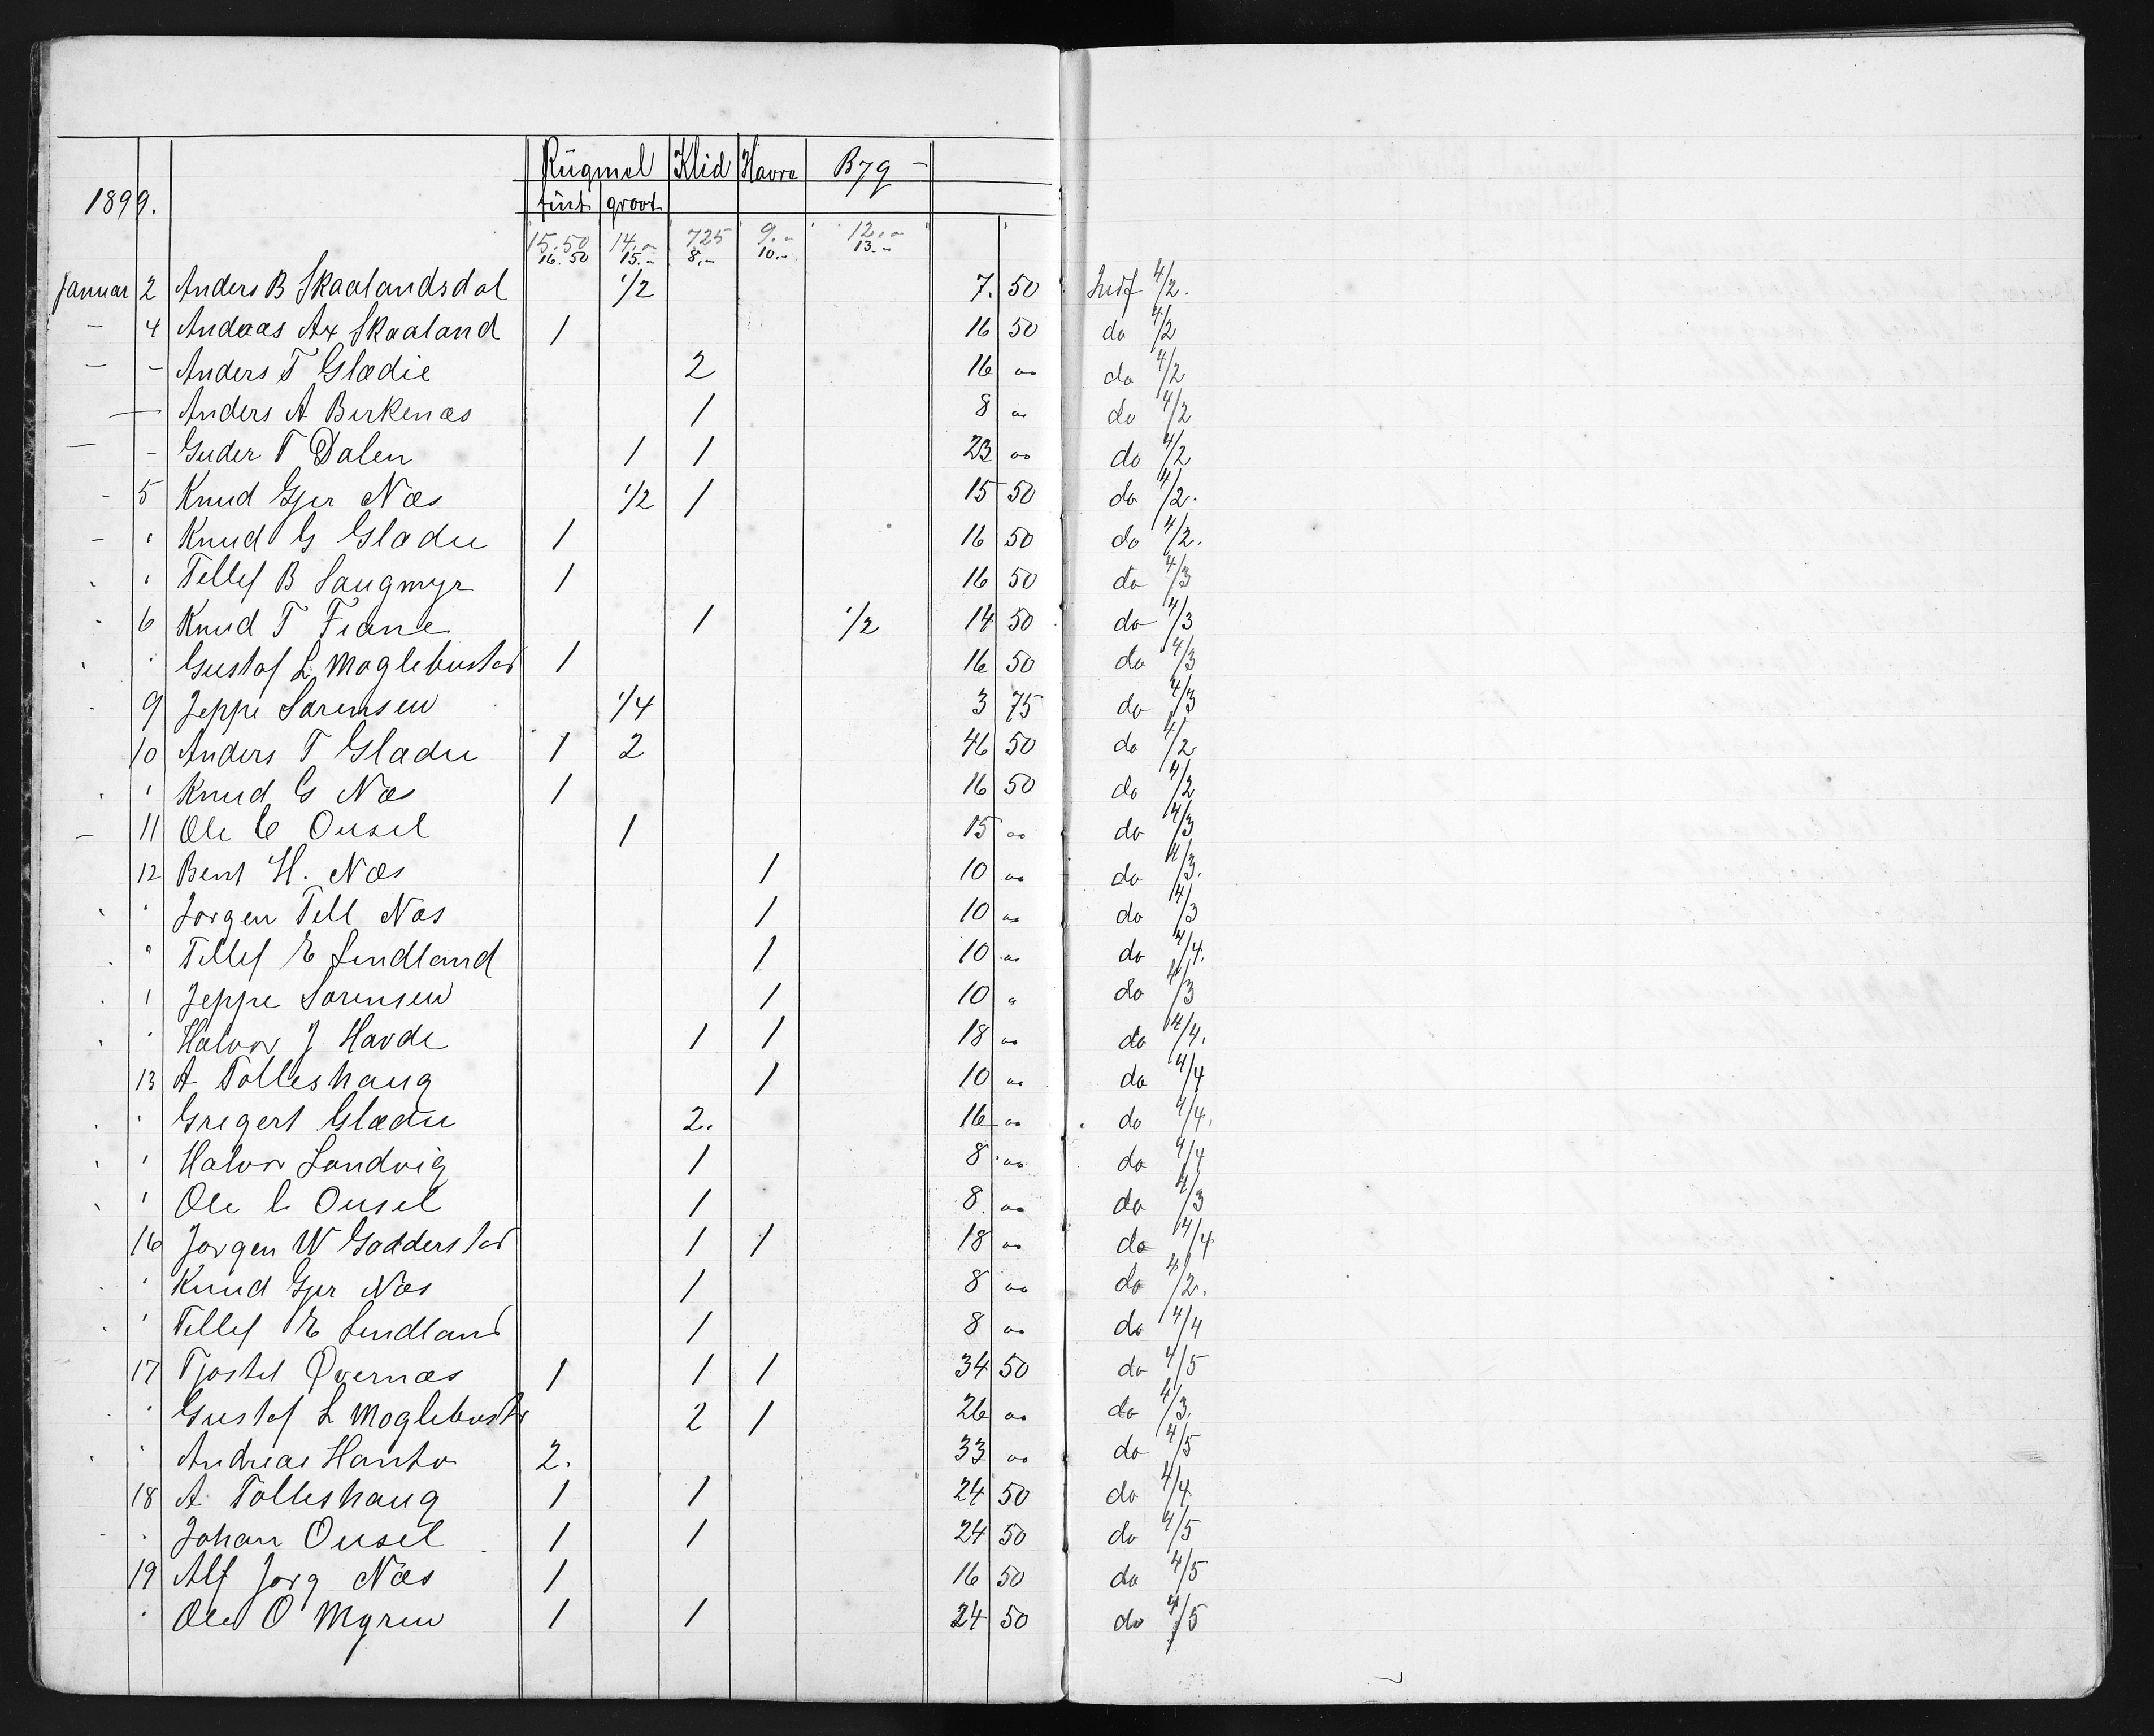 Rügmel Klid Havre Byg -
1899. fint groot
15.50 14.- 725 9.- 12.-
16.50 15.- 8.- 10.- 13.-
Januar 2 Anders B Skaalandsdal 1/2 7. 50 Indf 4/2.
- 4 Andeas Ax Skaaland 1 16 50 do 4/2
- - Anders T Gladie 2 16 " do 4/2
- Anders A Birkenæs 1 8 " do 4/2
- - Guder T Dalen 1 1 23 " do 4/2
- 5 Knud Gjer Næs 1/2 1 15 50 do 4/2.
- " Knud G Gladie 1 16 50 do 4/2.
" " Tellef B Saugmyr 1 16 50 do 4/3
" 6 Knud T Fiane 1 1/2 14 50 do 4/3
" " Gustaf L Moglebustad 1 16 50 do 4/3
" 9 Jeppe Sørensen 1/4 3 75 do 4/3
10 Anders T Gladie 1 2 46 50 do 4/2
" " Knud G Næs 1 16 50 do 4/2
- 11 Ole C Ousel 1 15 " do 4/3
12 Bent H. Næs 1 10 " do 4/3.
" " Jørgen Tell Næs 1 10 " do 4/3
" " Tellef E Lindland 1 10 " do 4/4.
" " Jeppe Sørensen 1 10 " do 4/3
" " Halvor J Havde 1 1 18 " do 4/4.
13 A Tolleshaug 1 10 " do 4/4
" " Gregert Gladie 2. 16 " do 4/4.
" " Halvor Landvig 1 8 " do 4/4
" " Ole C Ousel 1 8 " do 4/3
16 Jørgen W Godderstad 1 1 18 " do 4/4
" " Knud Gjer Næs 1 8 " do 4/2.
" " Tellef E Lindland 1 8 " do 4/4
17 Tjøstel Øvernæs 1 1 1 34 50 do 4/5
" " Gustaf L Moglebustad 2 1 26 " do 4/3.
" " Andreas Hanto 2. 33 " do 4/5
18 A Tolleshaug 1 1 24 50 do 4/4
- " Johan Ousel 1 1 24 50 do 4/5
19 Alf Jørg Næs 1 16 50 do 4/5
" Ole O Myren 1 1 24 50 do 4/5